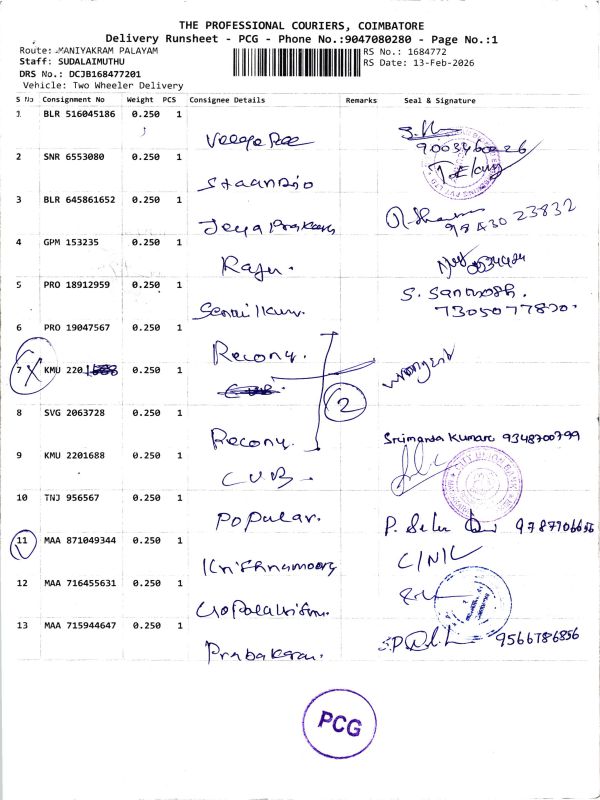 THE PROFESSIONAL COURIERS, COIMBATORE
Delivery Runsheet - PCG - Phone No.:9047080280 - Page No.:1
Route: MANIYAKRAM PALAYAM
RS No.: 1684772
Staff: SUDALAIMUTHU
RS Date: 13-Feb-2026
DRS No.: DCJB168477201
Vehicle: Two Wheeler Delivery
S No Consignment No Weight PCS Consignee Details Remarks Seal & Signature
1 BLR 516045186 0.250 1
9003460026
2 SNR 6553080 0.250 1
3 BLR 645861652 0.250 1
Jeya Prakash
9843023832
4 GPM 153235 0.250 1
Raju.
5 PRO 18912959 0.250 1
S. Santhosh.
Senthilkum.
7305077820.
6 PRO 19047567 0.250 1
Recony.
7 X KMU 220 0.250 1
2
8 SVG 2063728 0.250 1
Recony.
Srimanta Kumar 9348700799
9 KMU 2201688 0.250 1
CUB.
CITY UNION BANK
10 TNJ 956567 0.250 1
Popular.
P. Selu 9787706656
11 MAA 871049344 0.250 1
Krishnamoory
12 MAA 716455631 0.250 1
Gopalakrishn.
13 MAA 715944647 0.250 1
Prabakaran.
9566786856
PCG